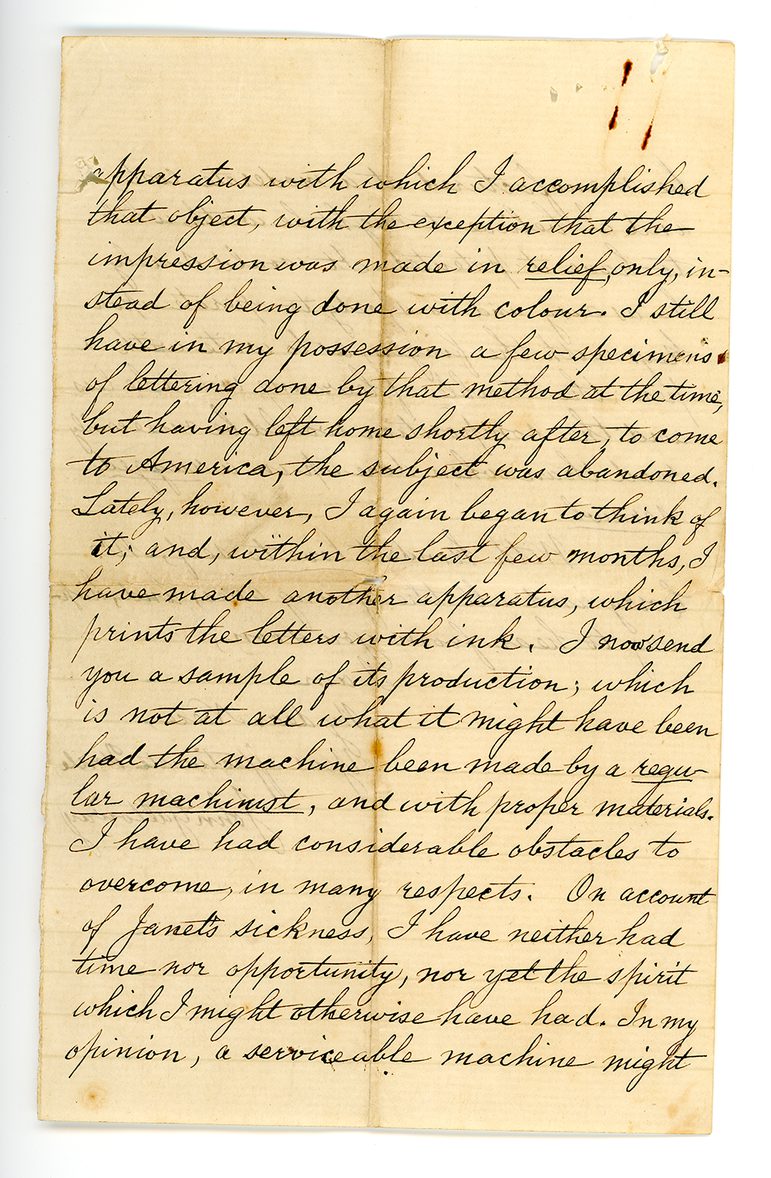 apparatus with which I accomplished
that object, with the exception that the
impression was made in relief, only, in-
stead of being done with colour. I still
have in my possession a few specimens
of lettering done by that method at the time,
but having left home shortly after, to come
to America, the subject was abandoned.
Lately, however, I again began to think of
it; and, within the last few months, I
have made another apparatus, which
prints the letters with ink. I now send
you a sample of its production; which
is not at all what it might have been
had the machine been made by a regu-
lar machinist, and with proper materials.
I have had considerable obstacles to
overcome, in many respects. On account
of Janet's sickness, I have neither had
time nor opportunity, nor yet the spirit
which I might otherwise have had. In my
opinion, a serviceable machine might